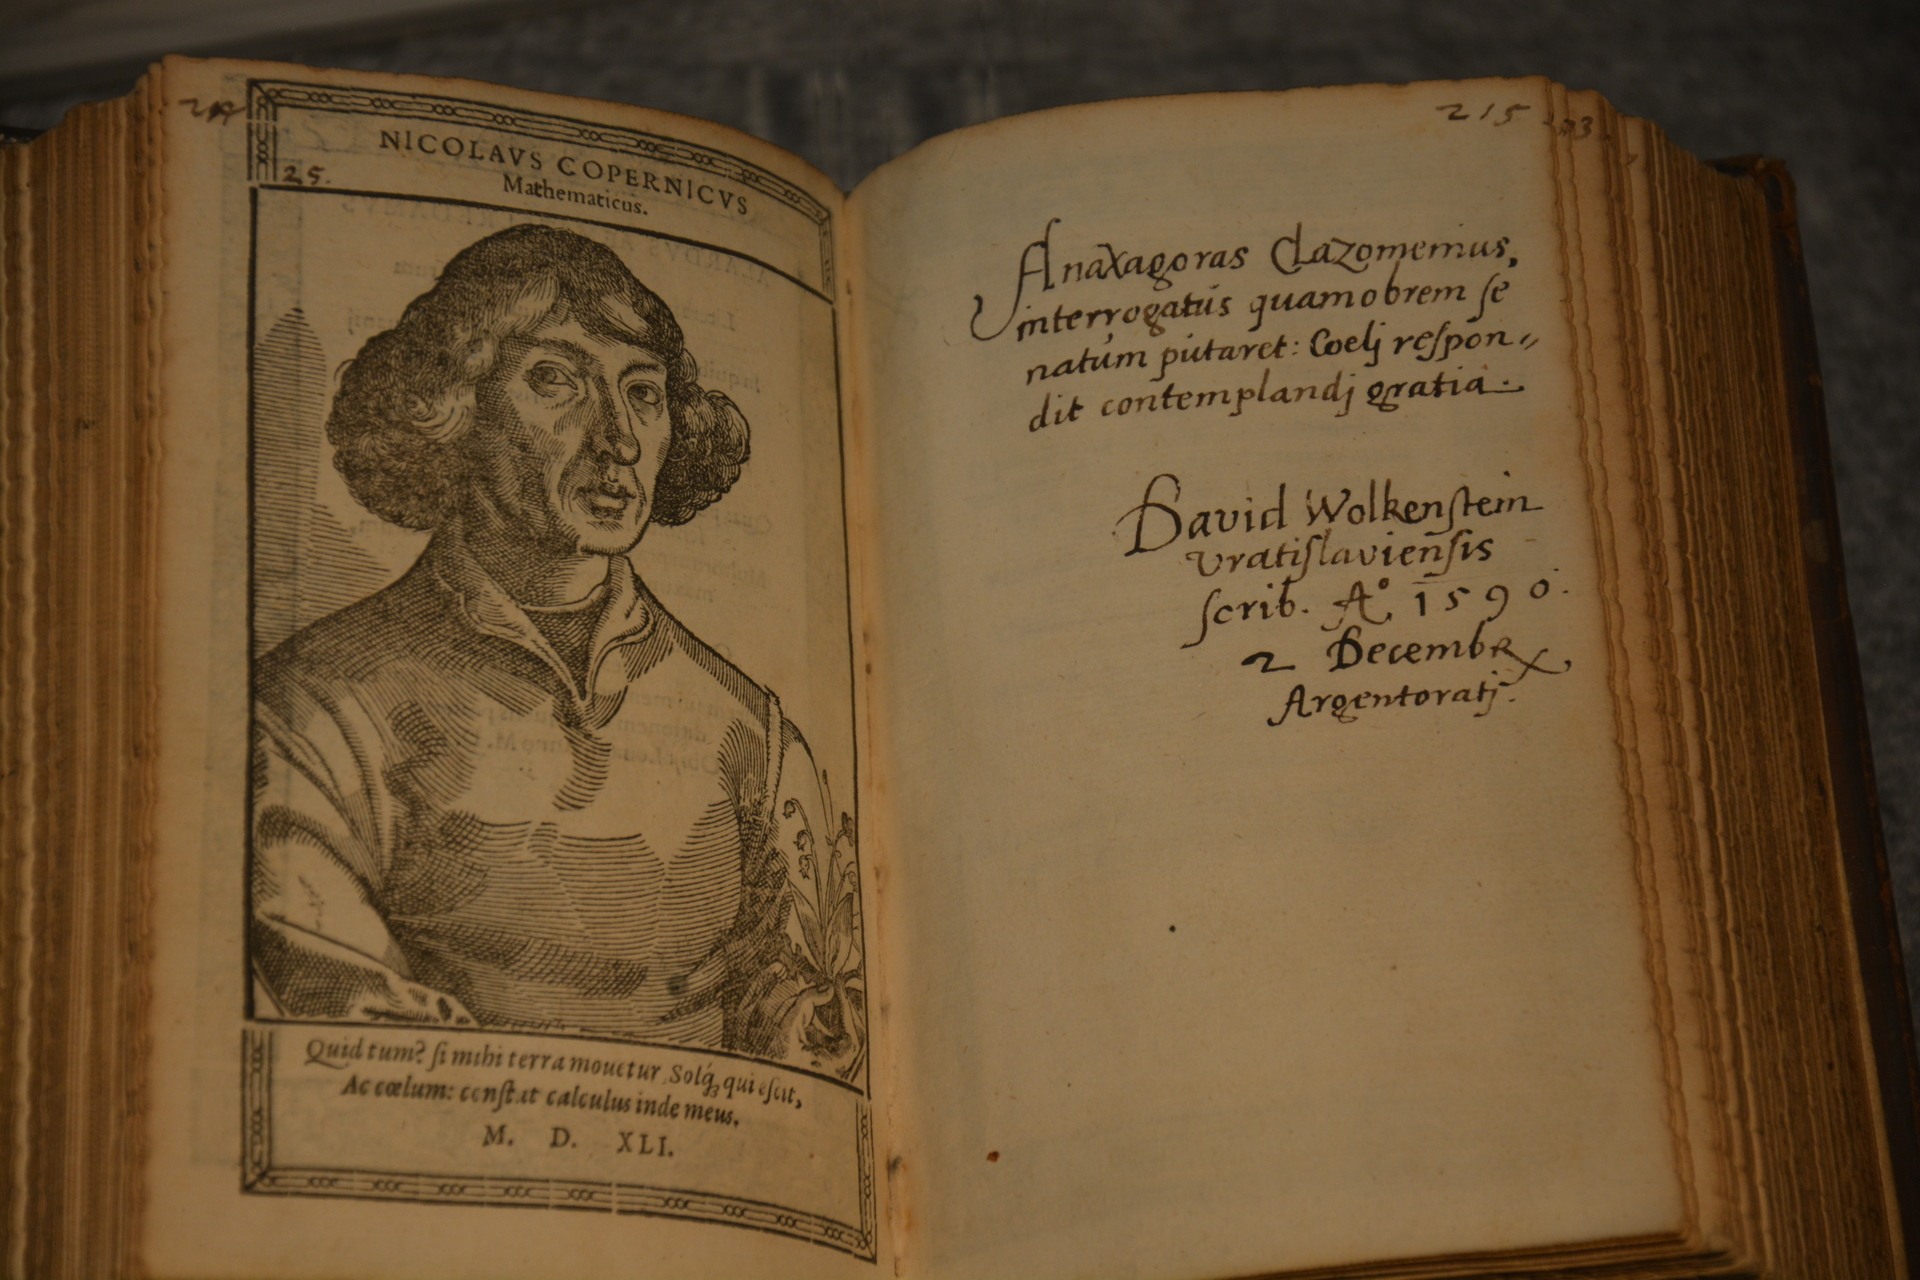 NICOLAVS COPERNICVS
25.
Mathematicus.
Quid tum? ſi mihi terra mouetur, Solq́; quieſcit,
Ac cœlum: conſtat calculus inde meus.
M. D. XLI.
215
Anaxagoras Clazomenius,
interrogatus quamobrem ſe
natum putaret: Coelj reſpon⸗
dit contemplandj gratia.
David Wolkenſtein
Vratiſlavienſis
ſcrib. Aº. 1590.
2 Decembr.
Argentoratj.